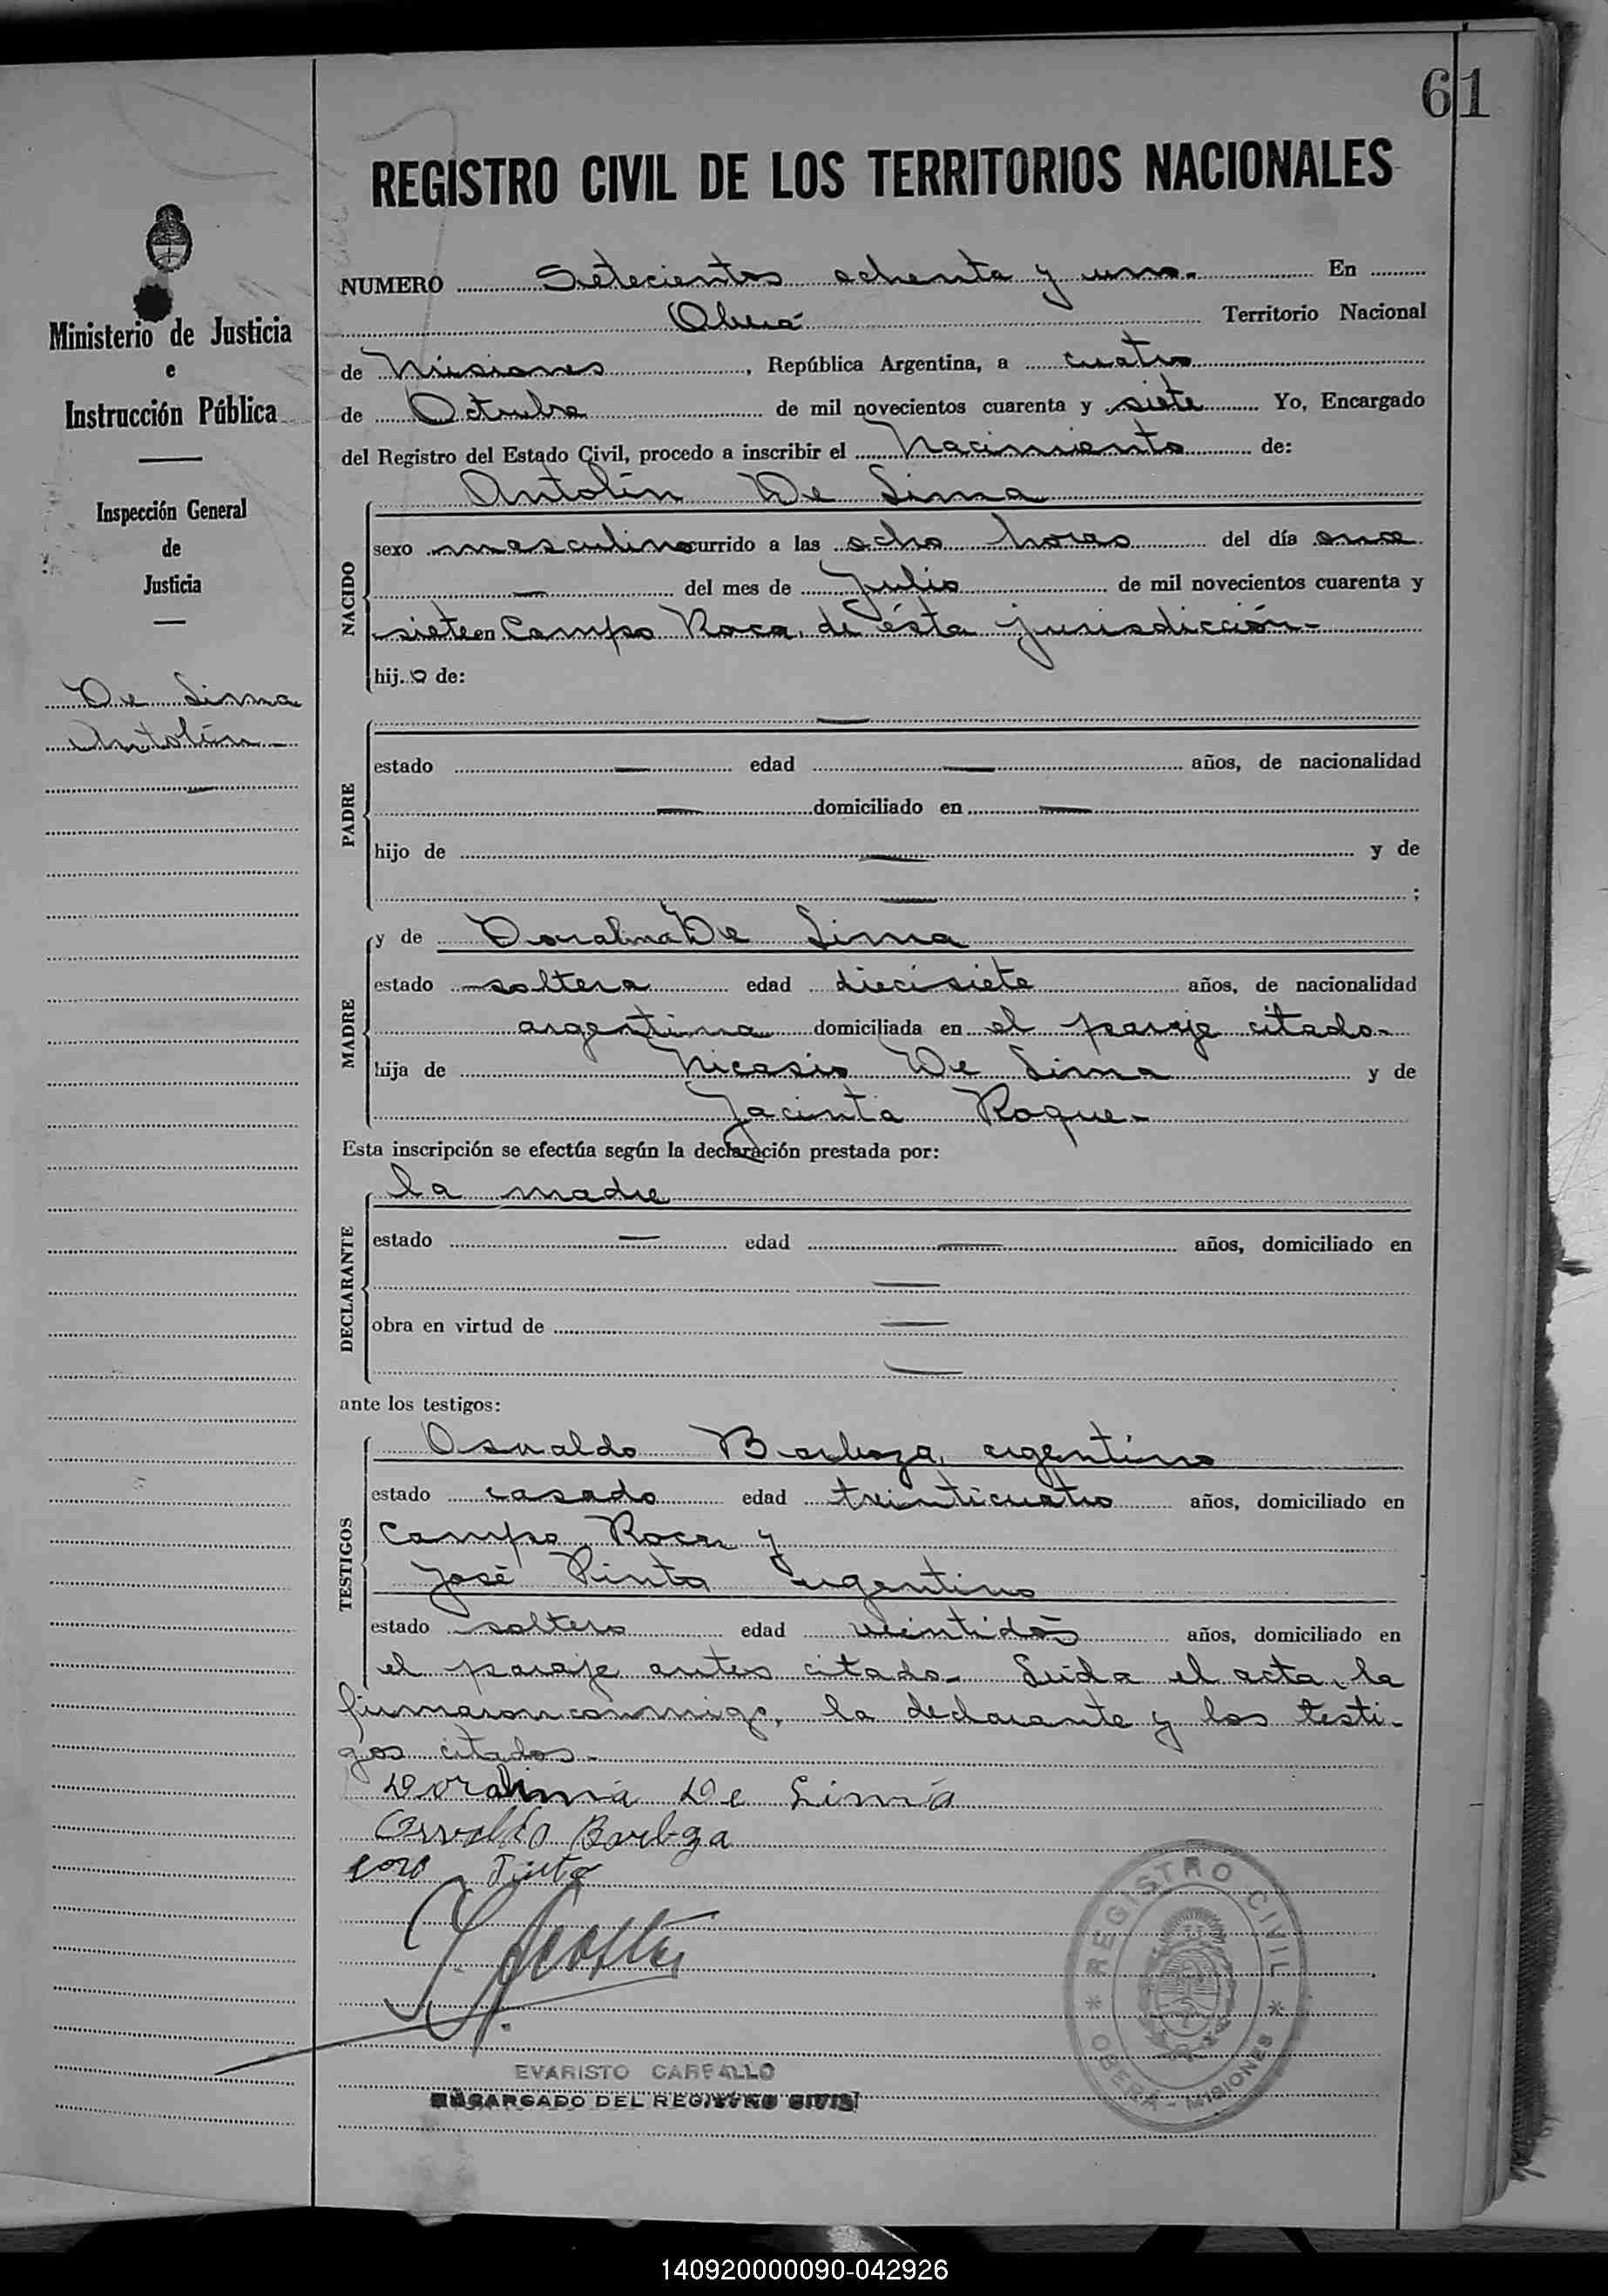 61
REGISTRO CIVIL DE LOS TERRITORIOS NACIONALES
Ministerio de Justicia
e
Instrucción Pública
Inspección General
de
Justicia
De Lima
Antolín
NUMERO Setecientos ochenta y uno. En
Oberá Territorio Nacional
de Misiones, República Argentina, a cuatro
de Octubre de mil novecientos cuarenta y siete Yo, Encargado
del Registro del Estado Civil, procedo a inscribir el Nacimiento de:
NACIDO
Antolín De Lima
sexo masculino ocurrido a las ocho horas del día once
— del mes de Julio de mil novecientos cuarenta y
siete en Campo Roca, de ésta jurisdicción-
hijo de:
PADRE
—
estado — edad — años, de nacionalidad
— domiciliado en —
hijo de — y de
— ;
MADRE
y de Doralina De Lima
estado soltera edad diecisiete años, de nacionalidad
argentina domiciliada en el paraje citado-
hija de Nicasio De Lima y de
Jacinta Roque-
Esta inscripción se efectúa según la declaración prestada por:
DECLARANTE
la madre
estado — edad — años, domiciliado en
—
obra en virtud de —
—
ante los testigos:
TESTIGOS
Osvaldo Barboza, argentino
estado casado edad treinticuatro años, domiciliado en
Campo Roca y
José Pinto argentino
estado soltero edad veintidós años, domiciliado en
el paraje antes citado- Leida el acta, la
firmaron conmigo, la declarante y los testi-
gos citados-
Doralina De Lima
Osvaldo Barboza
Pinto
EVARISTO CARBALLO
ENCARGADO DEL REGISTRO CIVIL
REGISTRO CIVIL
* OBERÁ - MISIONES *
140920000090-042926